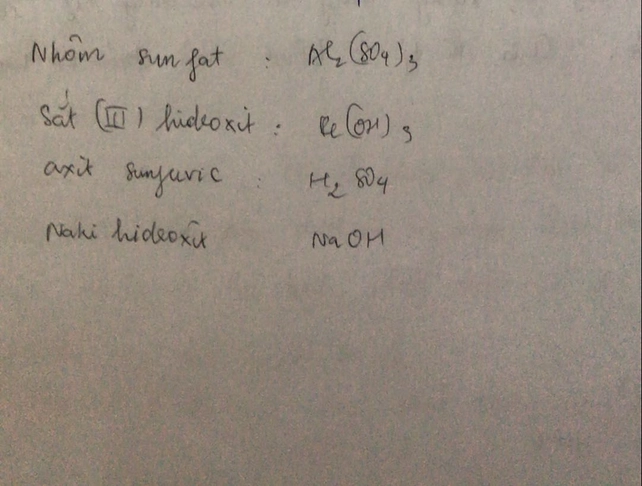 Nhôm sunfat : Al2(SO4)3
Sắt (III) hideoxit : Fe(OH)3
axit sunfuric : H2SO4
Nahi hideoxit NaOH